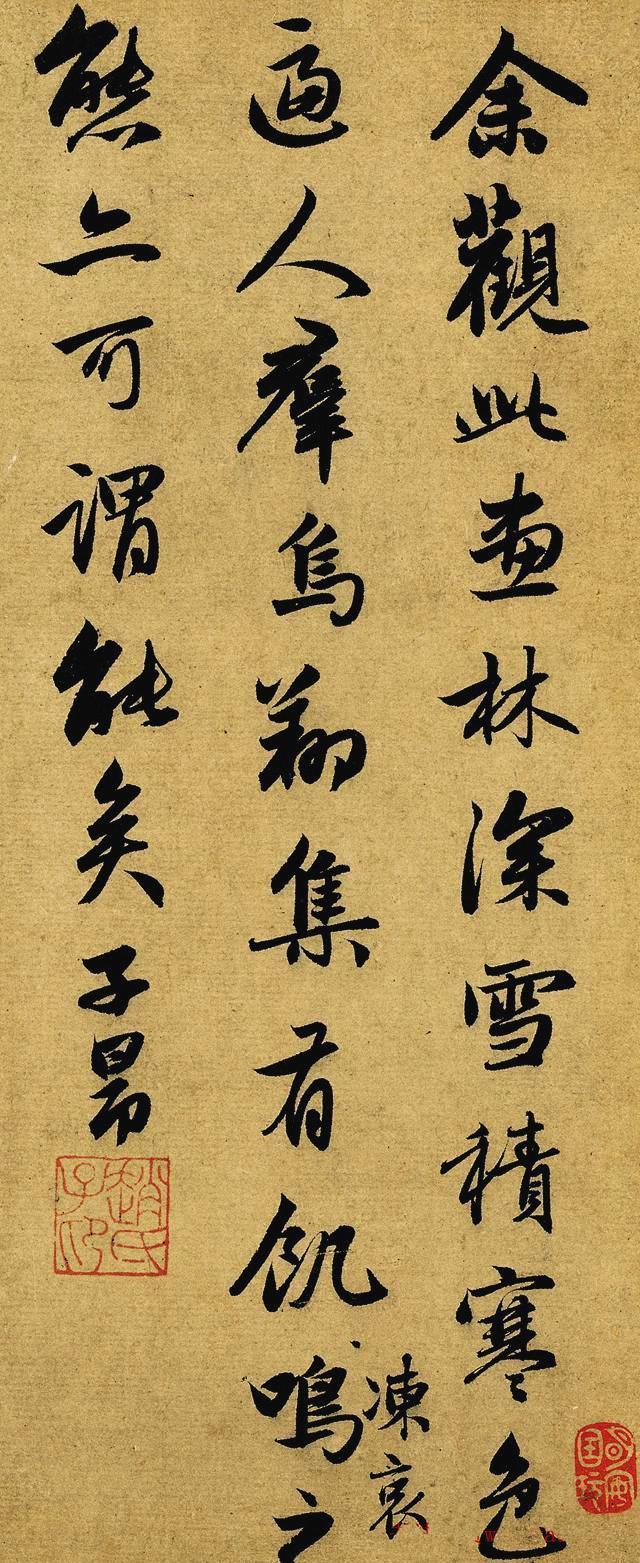 余觀此畫林深雪積寒色
逼人羣烏翔集有飢凍哀鳴之
態亦可謂能矣子昂
趙氏子昂
明安国玩